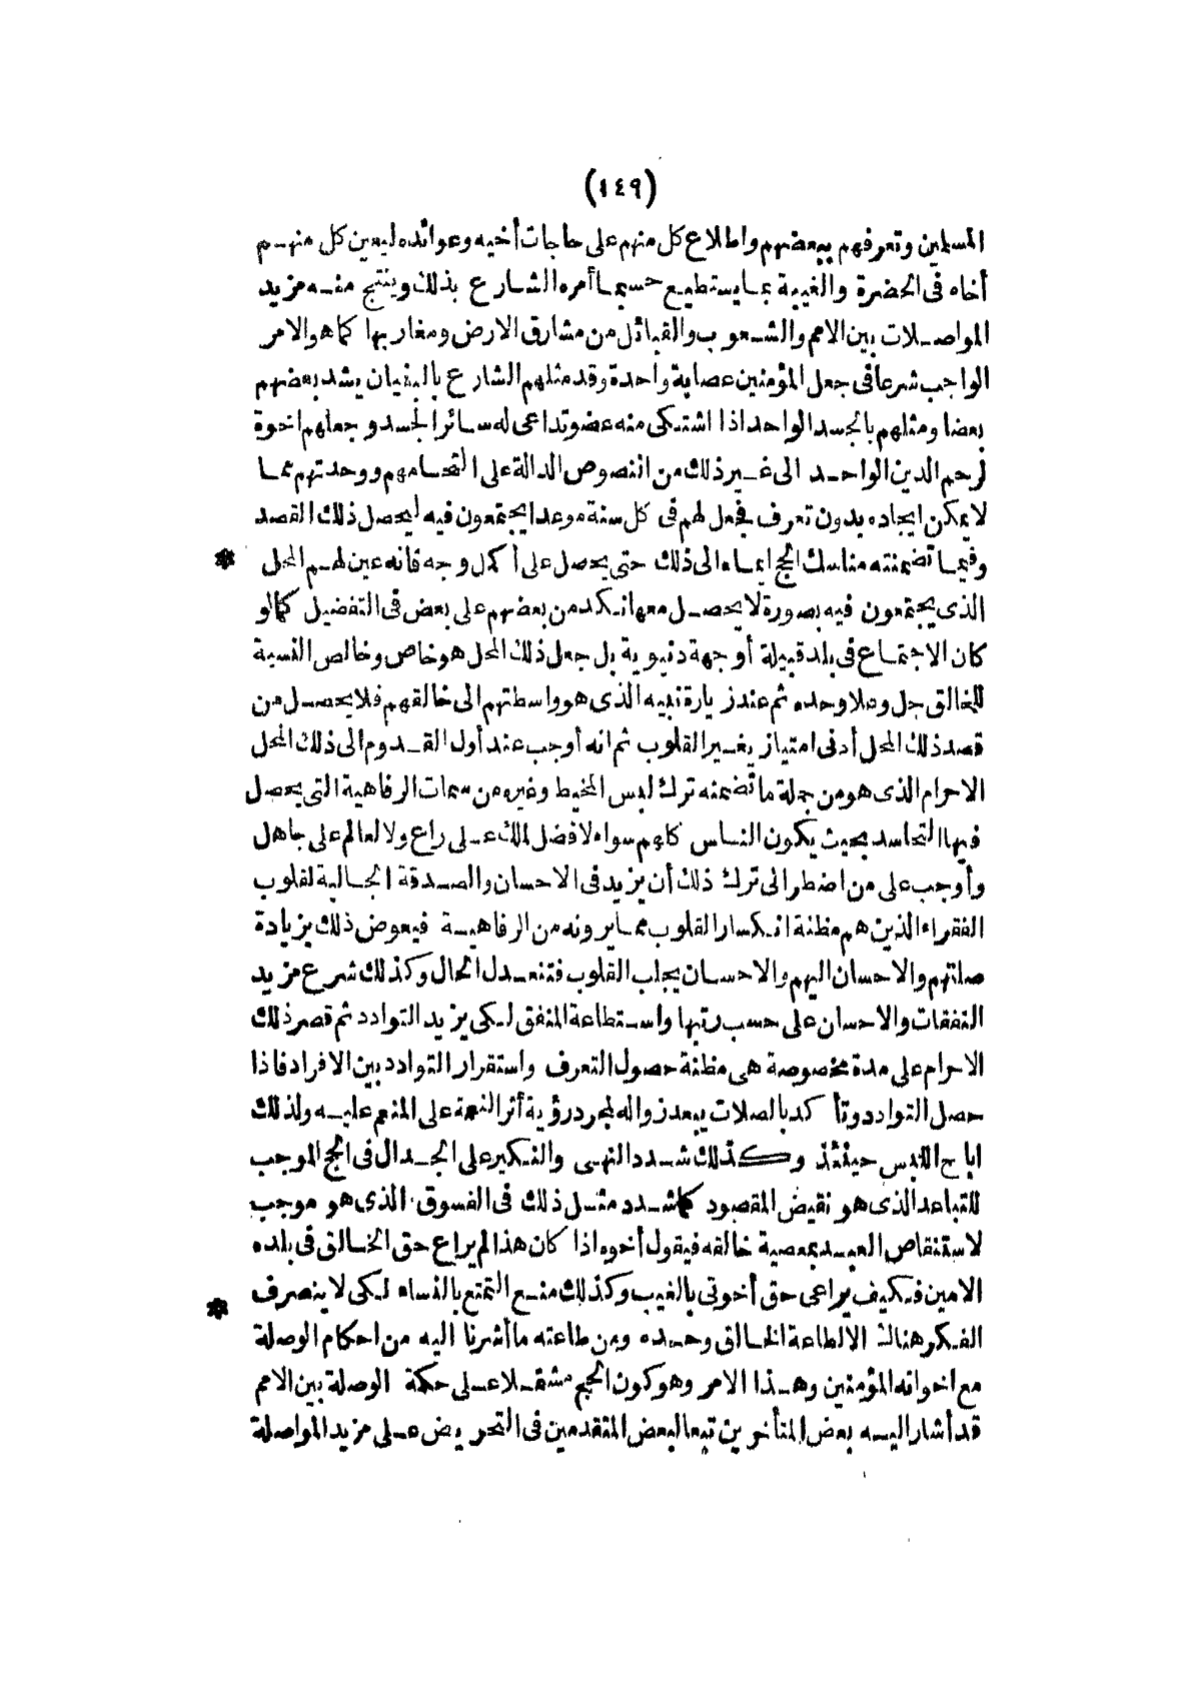 (١٤٩)
المسلمين وتعرفهم ببعضهم واطلاع كل منهم على حاجات أخيه وعوائده ليعين كل منهم
أخاه فى الحضرة والغيبة بما يستطيع حسبما أمره الشارع بذلك وينتج منه مزيد
المواصلات بين الامم والشعوب والقبائل من مشارق الارض ومغاربها كما هو الامر
الواجب شرعا فى جعل المؤمنين عصابة واحدة وقد مثلهم الشارع بالبنيان يشد بعضهم
بعضا ومثلهم بالجسد الواحد اذا اشتكى منه عضو تداعى له سائر الجسد وجعلهم اخوة
لرحم الدين الواحد الى غير ذلك من النصوص الدالة على التحامهم ووحدتهم مما
لا يمكن ايجاده بدون تعرف فجعل لهم فى كل سنة موعدا يجتمعون فيه ليحصل ذلك القصد
وفيما تضمنته مناسك الحج ايماء الى ذلك حتى يحصل على أكمل وجه فانه عين لهم المحل *
الذى يجتمعون فيه بصورة لا يحصل معها نكد من بعضهم على بعض فى التفضيل كما لو
كان الاجتماع فى بلد قبيلة أو جهة دنيوية بل جعل ذلك المحل هو خاص وخالص النسبة
للخالق جل وعلا وحده ثم عند زيارة نبيه الذى هو واسطتهم الى خالقهم فلا يحصل من
قصد ذلك المحل أدنى امتياز يغير القلوب ثم انه أوجب عند أول القدوم الى ذلك المحل
الاحرام الذى هو من جملة ما تضمنه ترك لبس المخيط وغيره من سمات الرفاهية التى يحصل
فيها التحاسد بحيث يكون الناس كلهم سواء لا فضل لملك على راع ولا لعالم على جاهل
وأوجب على من اضطر الى ترك ذلك أن يزيد فى الاحسان والصدقة الجالبة لقلوب
الفقراء الذين هم مظنة انكسار القلوب مما يرونه من الرفاهية فيعوض ذلك بزيادة
صلتهم والاحسان اليهم والاحسان يجلب القلوب فتنعدل الحال وكذلك شرع مزيد
النفقات والاحسان على حسب رتبها واستطاعة المنفق لكى يزيد التوادد ثم قصر ذلك
الاحرام على مدة مخصوصة هى مظنة حصول التعرف واستقرار التوادد بين الافراد فاذا
حصل التوادد وتأكد بالصلات يبعد زواله لمجرد رؤية أثر النعمة على المنعم عليه ولذلك
اباح اللبس حينئذ وكذلك شدد النهى والنكير على الجدال فى الحج الموجب
للتباعد الذى هو نقيض المقصود كما شدد مثل ذلك فى الفسوق الذى هو موجب
لاستنقاص العبد بمعصية خالقه فيقول أخوه اذا كان هذا لم يراع حق الخالق فى بلده
الامين فكيف يراعى حق أخوتى بالغيب وكذلك منع التمتع بالنساء لكى لا ينصرف *
الفكر هناك الا لطاعة الخالق وحده ومن طاعته ما أشرنا اليه من احكام الوصلة
مع اخوانه المؤمنين وهذا الامر وهو كون الحج مشتملا على حكمة الوصلة بين الامم
قد أشار اليه بعض المتأخرين تبعا لبعض المتقدمين فى التحريض على مزيد المواصلة